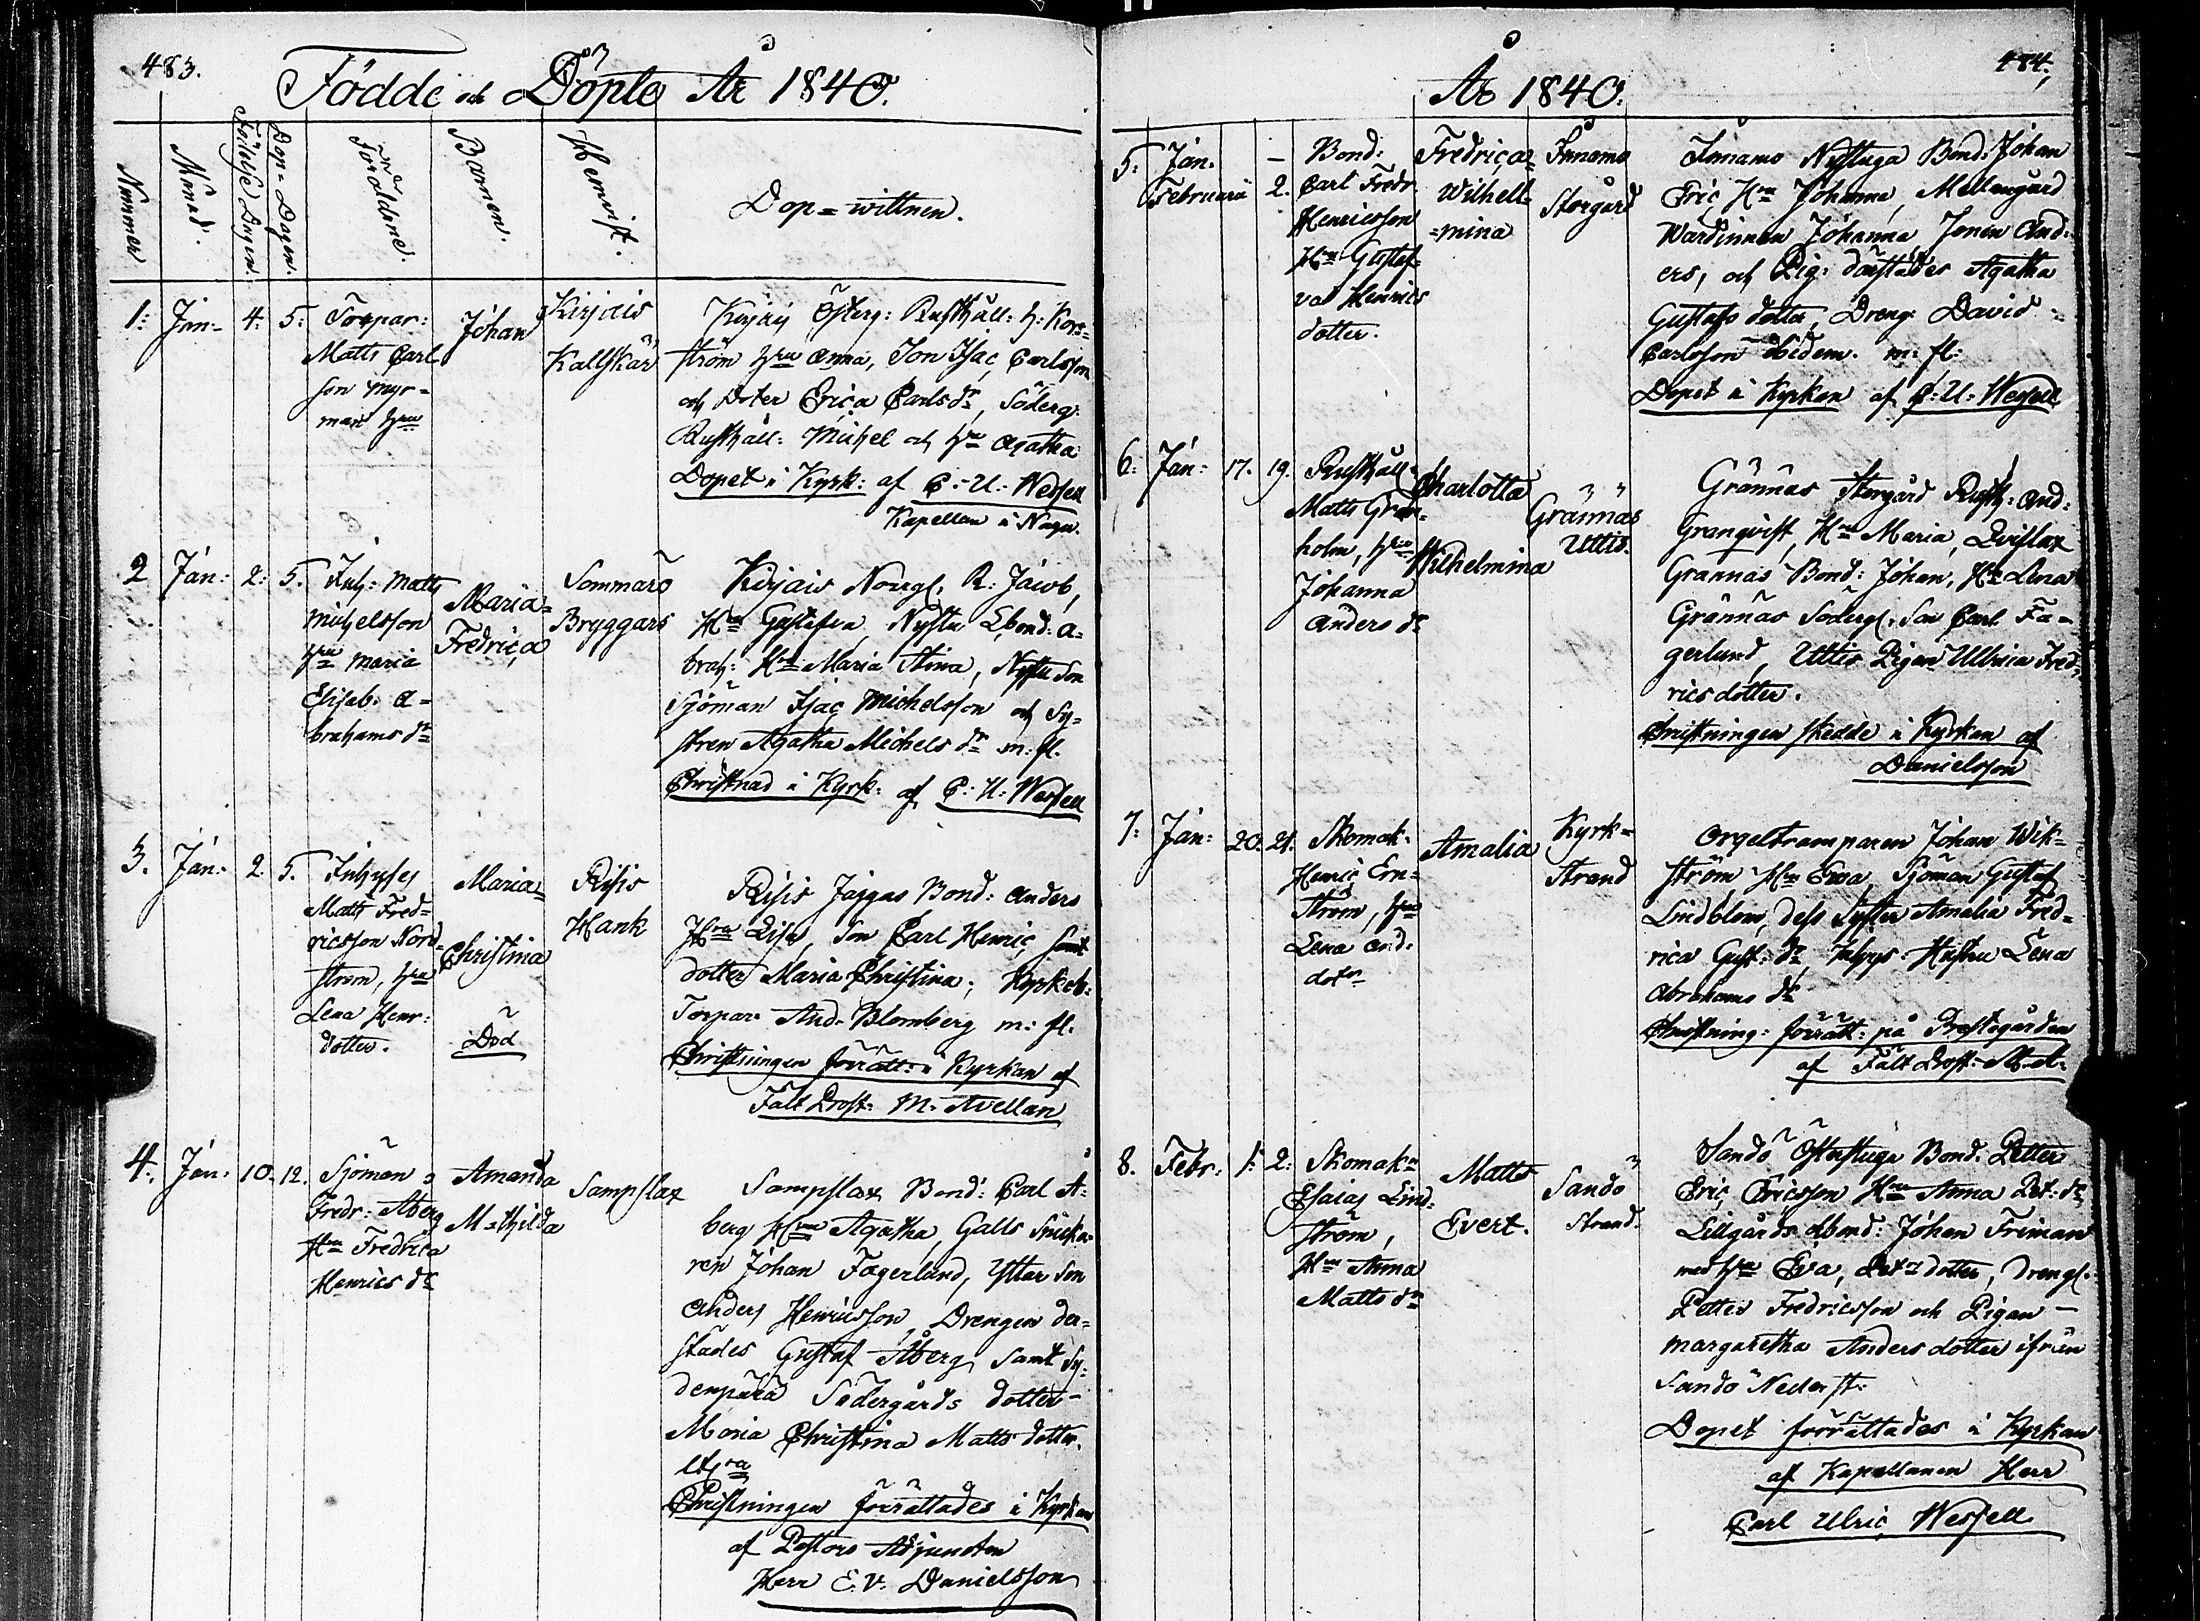 483.
Födde och Döpte År 1840.
Nummer.
Månad.
Födelse Dagen.
Dop-Dagen.
Föräldrar.
Barnen.
Hemvist.
Dop=wittnen.
1: Jan- 4: 5:
Torpar:
Matts Carl
son Myr=
man hu
Johan
Kirjais
Kallskär
Kirjais Österg: Rusthåll: H: Kors=
ström hru Anna, Son Isac Carlsson
och Doter Erica Carls dr, Söderg:
Rusthåll: Michel och hru Agatha
Dopet i Kyrk: af C.-U: Wessell
Kapellan i Nagu.
2 Jan: 2: 5.
Inh: Matts
Michelsson
hru Maria
Elisab: A=
brahams dr
Maria=
Fredrica
Sommarö
Bryggars
Kirjais Norrg. R: Jacob,
Hru Gustafva, Nystu Lbond: A=
brah: Hru Maria Stina, Nystu Son
Sjöman Isac Michelsson och Sy=
stren Agatha Michels dr m: fl.
Christnad i Kyrk: af C: U: Wessell
3. Jan: 2. 5.
Inhyses
Matts Fred=
ricsson Nord=
ström, hru
Lena Henr:
dotter.
Maria=
Christina
Död
Risis
Hank
Risis Jasgas Bond: Anders
Hru Lisa, Son Carl Henric samt
dotter Maria Christina; Kyrkob:
Torpar: And: Blomberg m: fl.
Christningen förrätt: i Kyrkan af
Fält Prost: M: Avellan
4. Jan: 10. 12.
Sjöman
Fredr: Åberg
Hru Fredrica
Henrics dr
Amanda
Mathilda
Sampslax
Sampslax Bond: Carl Å=
berg Hru Agatha, Galls Snicka=
ren Johan Fagerlund, Ytter Son
Anders Henricsson, Drengen der=
städes Gustaf Åberg, Samt Sy=
denpära Södergårds dotter
Maria Christina Matts dotter.
Christningen förrättades i Kyrkan
af Pastors Adjuncten
Herr E. V. Danielsson
484.
År 1840.
5: Jan. –
Februarii 2.
Bond:
Carl Fredr.
Henricsson
Hru Gustaf=
va Henrics
dotter.
Fredrica=
Wilhel=
=mina
Finnamo
Storgård
Finnamo Nystuga Bond: Johan
Eric, Hru Johanna, Mellangård
Wärdinnan Johanna, Sonen And=
ers, och Pig: därstädes Agatha
Gustafs dotter, Dreng: David
Carlsson ibidem. m: fl:
Dopet i Kyrkan af C: U: Wessell
6: Jan: 17. 19.
Rusthåll=
Matts Gran=
holm, hru
Johanna
Anders dr
Charlotta
Wilhelmina
Grännäs
Uttis.
Grännäs Storgård Rusth: And:
Granqvist, Hru Maria, Qvislax
Grannäs Bond: Johan, Hru Lena
Grännäs Söderg. Son Carl Fa=
gerlund, Uttis Pigan Ullrica Fred=
rics dotter.
Christningen skedde i Kyrkan af
Danielsson
7: Jan: 20. 21.
Skomak.
Henric Ern=
ström, hru
Lena And:
dotr
Amalia
Kyrk=
Strand
Orgeltramparen Johan Wik=
ström Hru Ewa, Sjöman Gustaf
Lindblom, dess Syster Amalia Fred=
rica Gust: dr, Inhys: Hustru Lena
Abrahams dr
Christning: förrätt: på Prostegården
af Fält Prost: M. A.
8. Febr: 1: 2:
Skomakn
Esaias Lind=
ström,
Hru Anna
Matts dr
Matts
Evert.
Sandö
Strand.
Sandö Österstuga Bond: Petter
Eric Ericsson Hru Anna Pet: dr
Lillgårds Lbond: Johan Friman
med hru Eva, Petrs dotter, Dreng.
Petter Fredricsson och Pigan –
Margaretha Anders dotter ifrån
Sandö Nederst:
Dopet förrättades i Kyrkan
af Kapellanen Herr
Carl Ulric Wessell